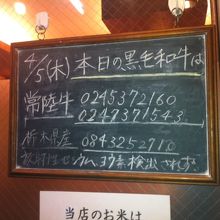 4/5(木)本日の黒毛和牛は
常陸牛 0245372160
0247371543
栃木県産 0843252710
放射性セシウム、ヨウ素検出されず
当店のお米は